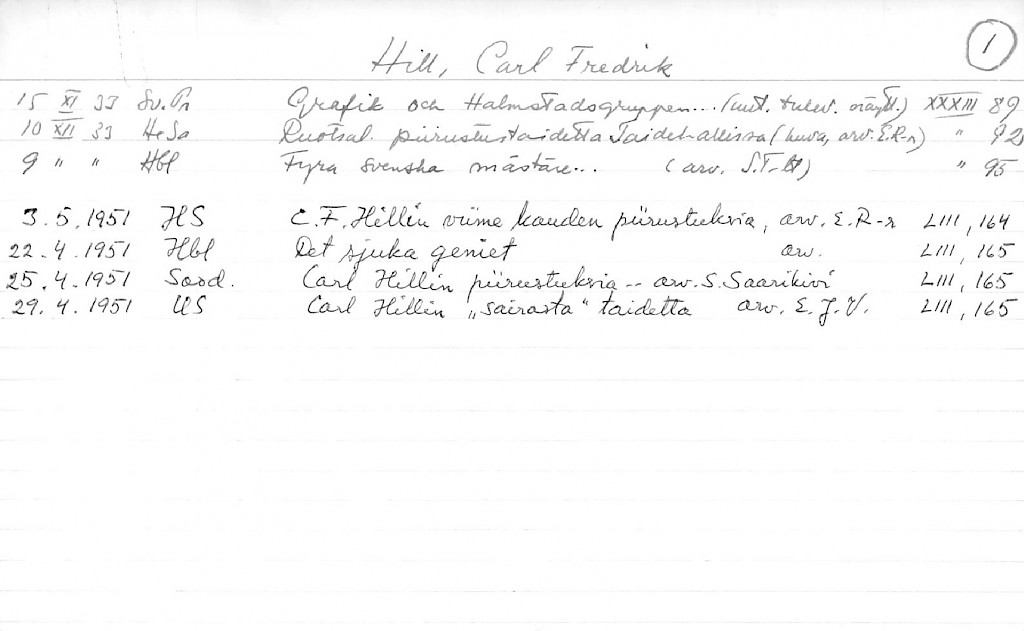 1
Hill, Carl Fredrik
15 XI 33 Sv.Pr Grafik och Halmstadsgruppen... (uut. tulev. näytt.) XXXIII 89
10 XII 33 HeSa Ruotsal. piirustustaidetta Taidehallissa (kuva, arv. E.R-r) " 92
9 " " Hbl Fyra svenska mästare... (arv. S.T-lt) " 95
3.5.1951 HS C.F. Hillin viime kauden piirustuksia, arv. E.R-r LIII, 164
22.4.1951 Hbl Det sjuka geniet arv. LIII, 165
25.4.1951 Sosd. Carl Hillin piirustuksia -- arv. S. Saarikivi LIII, 165
29.4.1951 US Carl Hillin „sairasta" taidetta arv. E.J.V. LIII, 165